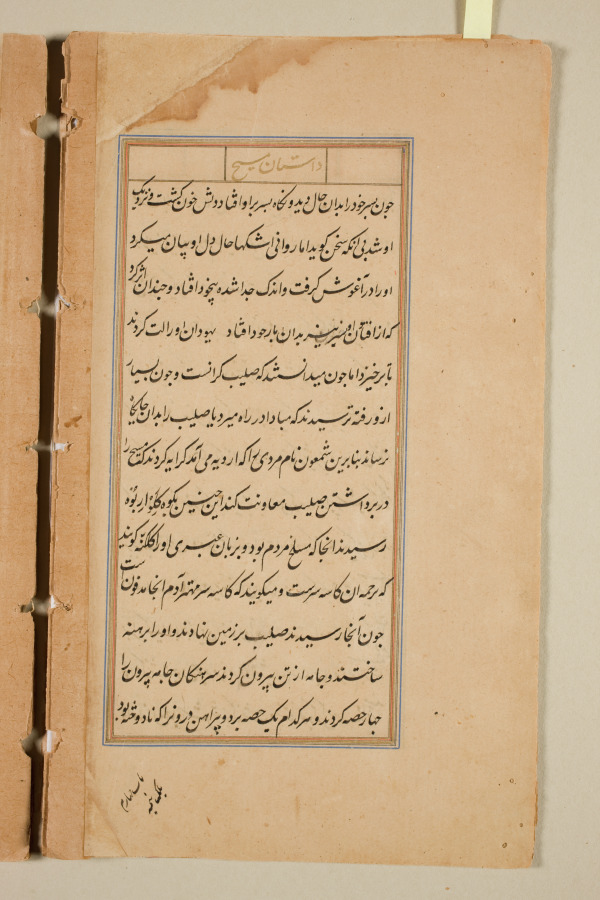 داستان مسیح
جون پسر خود را بدان حال دید و نگاه پسر بر او افتاد دلش خون کشت و نزدیک
او شد بی آنکه سخن کوید اما روانی اشکها حال دل او بیان میکرد
او را در آغوش کرفت و اندک جدا شده بیخود افتاد و جندان اثر کرد
که از افتادن او مسیح نیز بدان بار خود افتاد یهودان او را لت کردند
تا برخیزد اما جون میدانستند که صلیب کرانست و جون بسیار
از و رفته ترسیدند که مبادا در راه میرد یا صلیب را بدان جایکاه
نرساند بنابرین شمعون نام مردی را که از دیه می آمد کرایه کردند که مسیح را
در برداشتن صلیب معاونت کند این جنین بکوه کلوار بوه
رسیدند انجا که مسلخ مردم بود و بزبان عبری او را کلکته کویند
که ترجمه ان کاسه سرست و میکویند که کاسه سر مهتر آدم انجا مدفون است
جون آنجا رسیدند صلیب بر زمین نهادند و او را برهنه
ساختند و جامه از تن بیرون کردند سرهنکان جامه بیرون را
جهار حصه کردند و هر کدام یک حصه برد و پیراهن درونرا که نادوخته بود